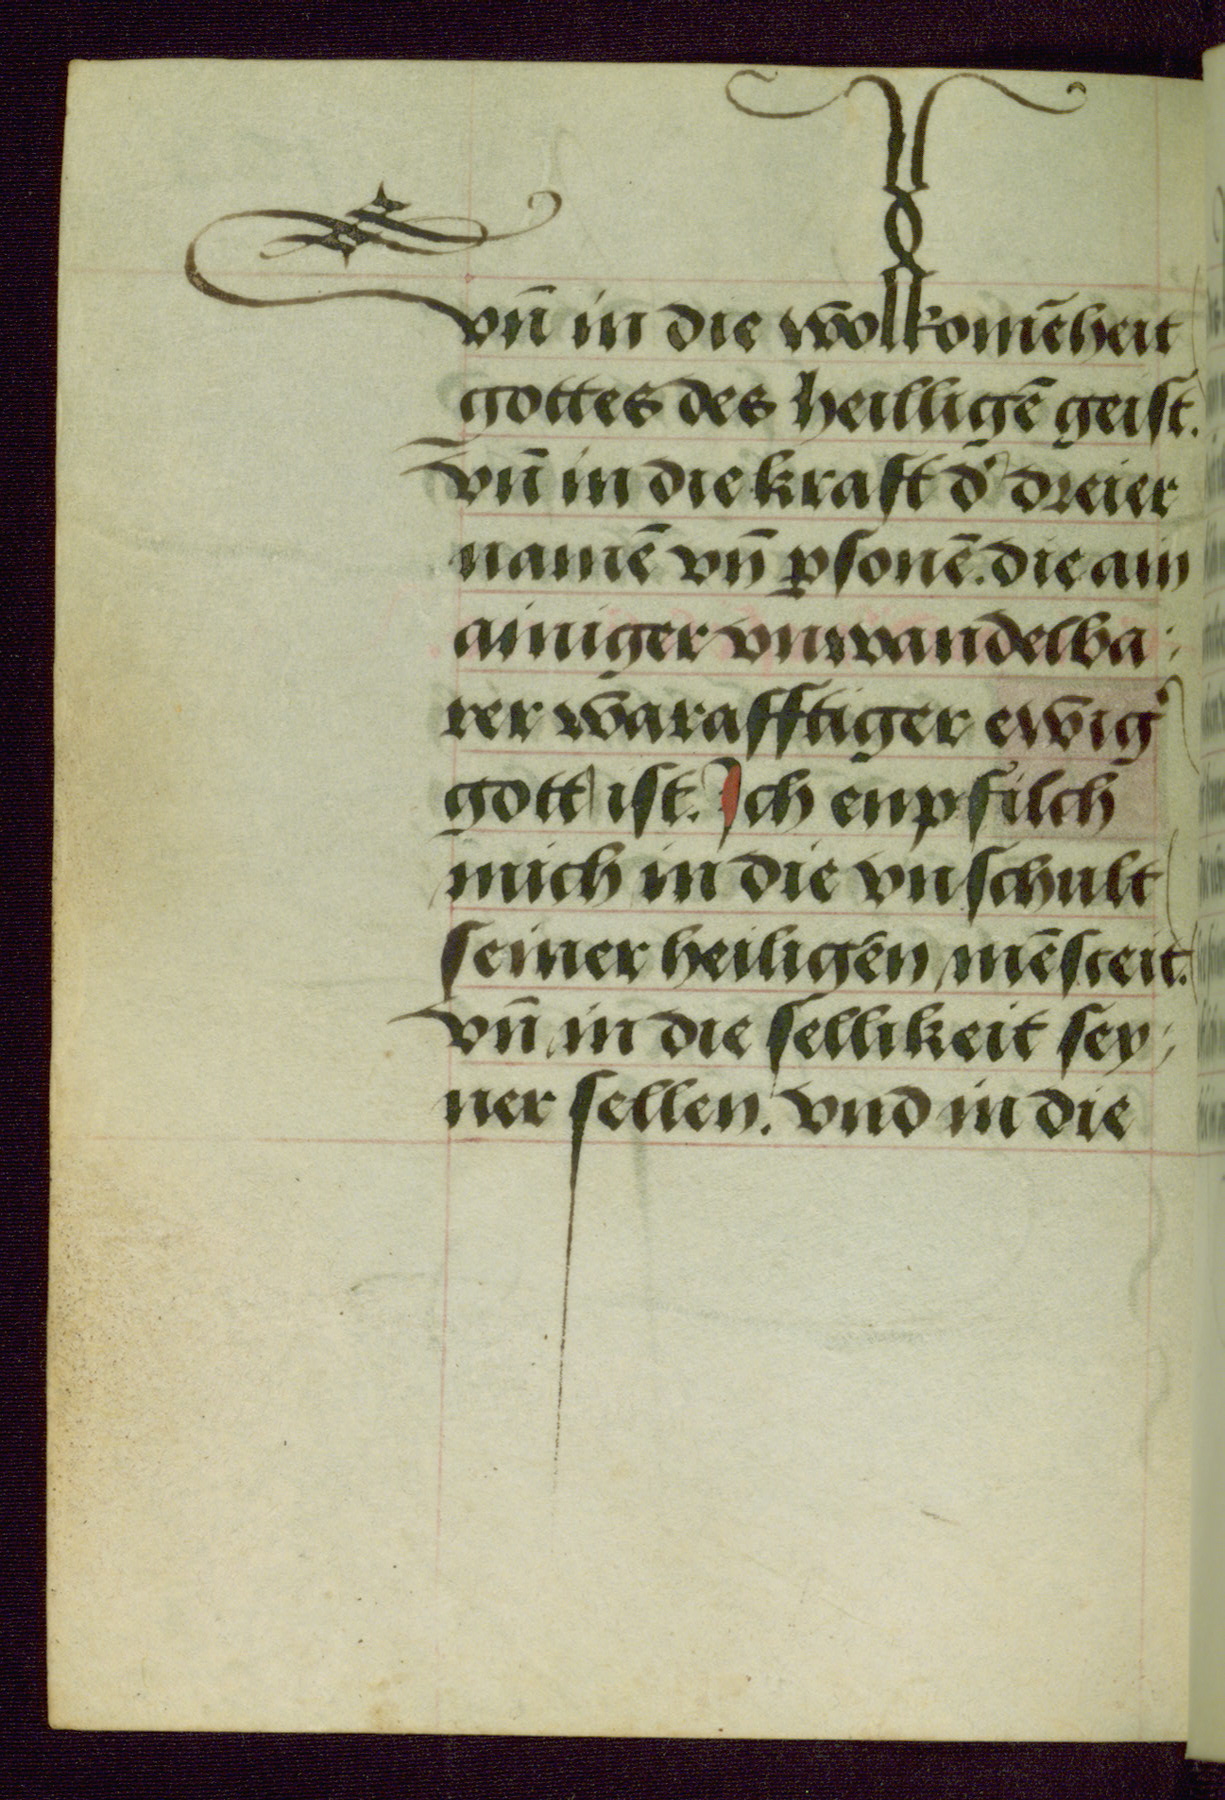 vn̄ in die wōlkomēheit
gottes des heilligē geist.
vn̄ in die kraft d' dreier
namē vn̄ ꝑsonē. die ain
ainiger vnwandelba:
rer warafftiger ewig'
gott ist. Ich enpfilch
mich in die vnschult
seiner heiligen mēsceit.
vn̄ in die sellikeit sey:
ner sellen. vnd in die